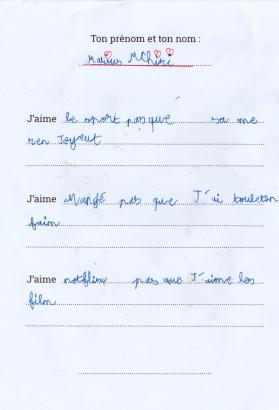 Ton prénom et ton nom :
Marius MChiri
J'aime le sport pasque sa me
ren Joyeut
J'aime Mangé pas que J'ai touleten
faim
J'aime notflix pas que J'aime les
film